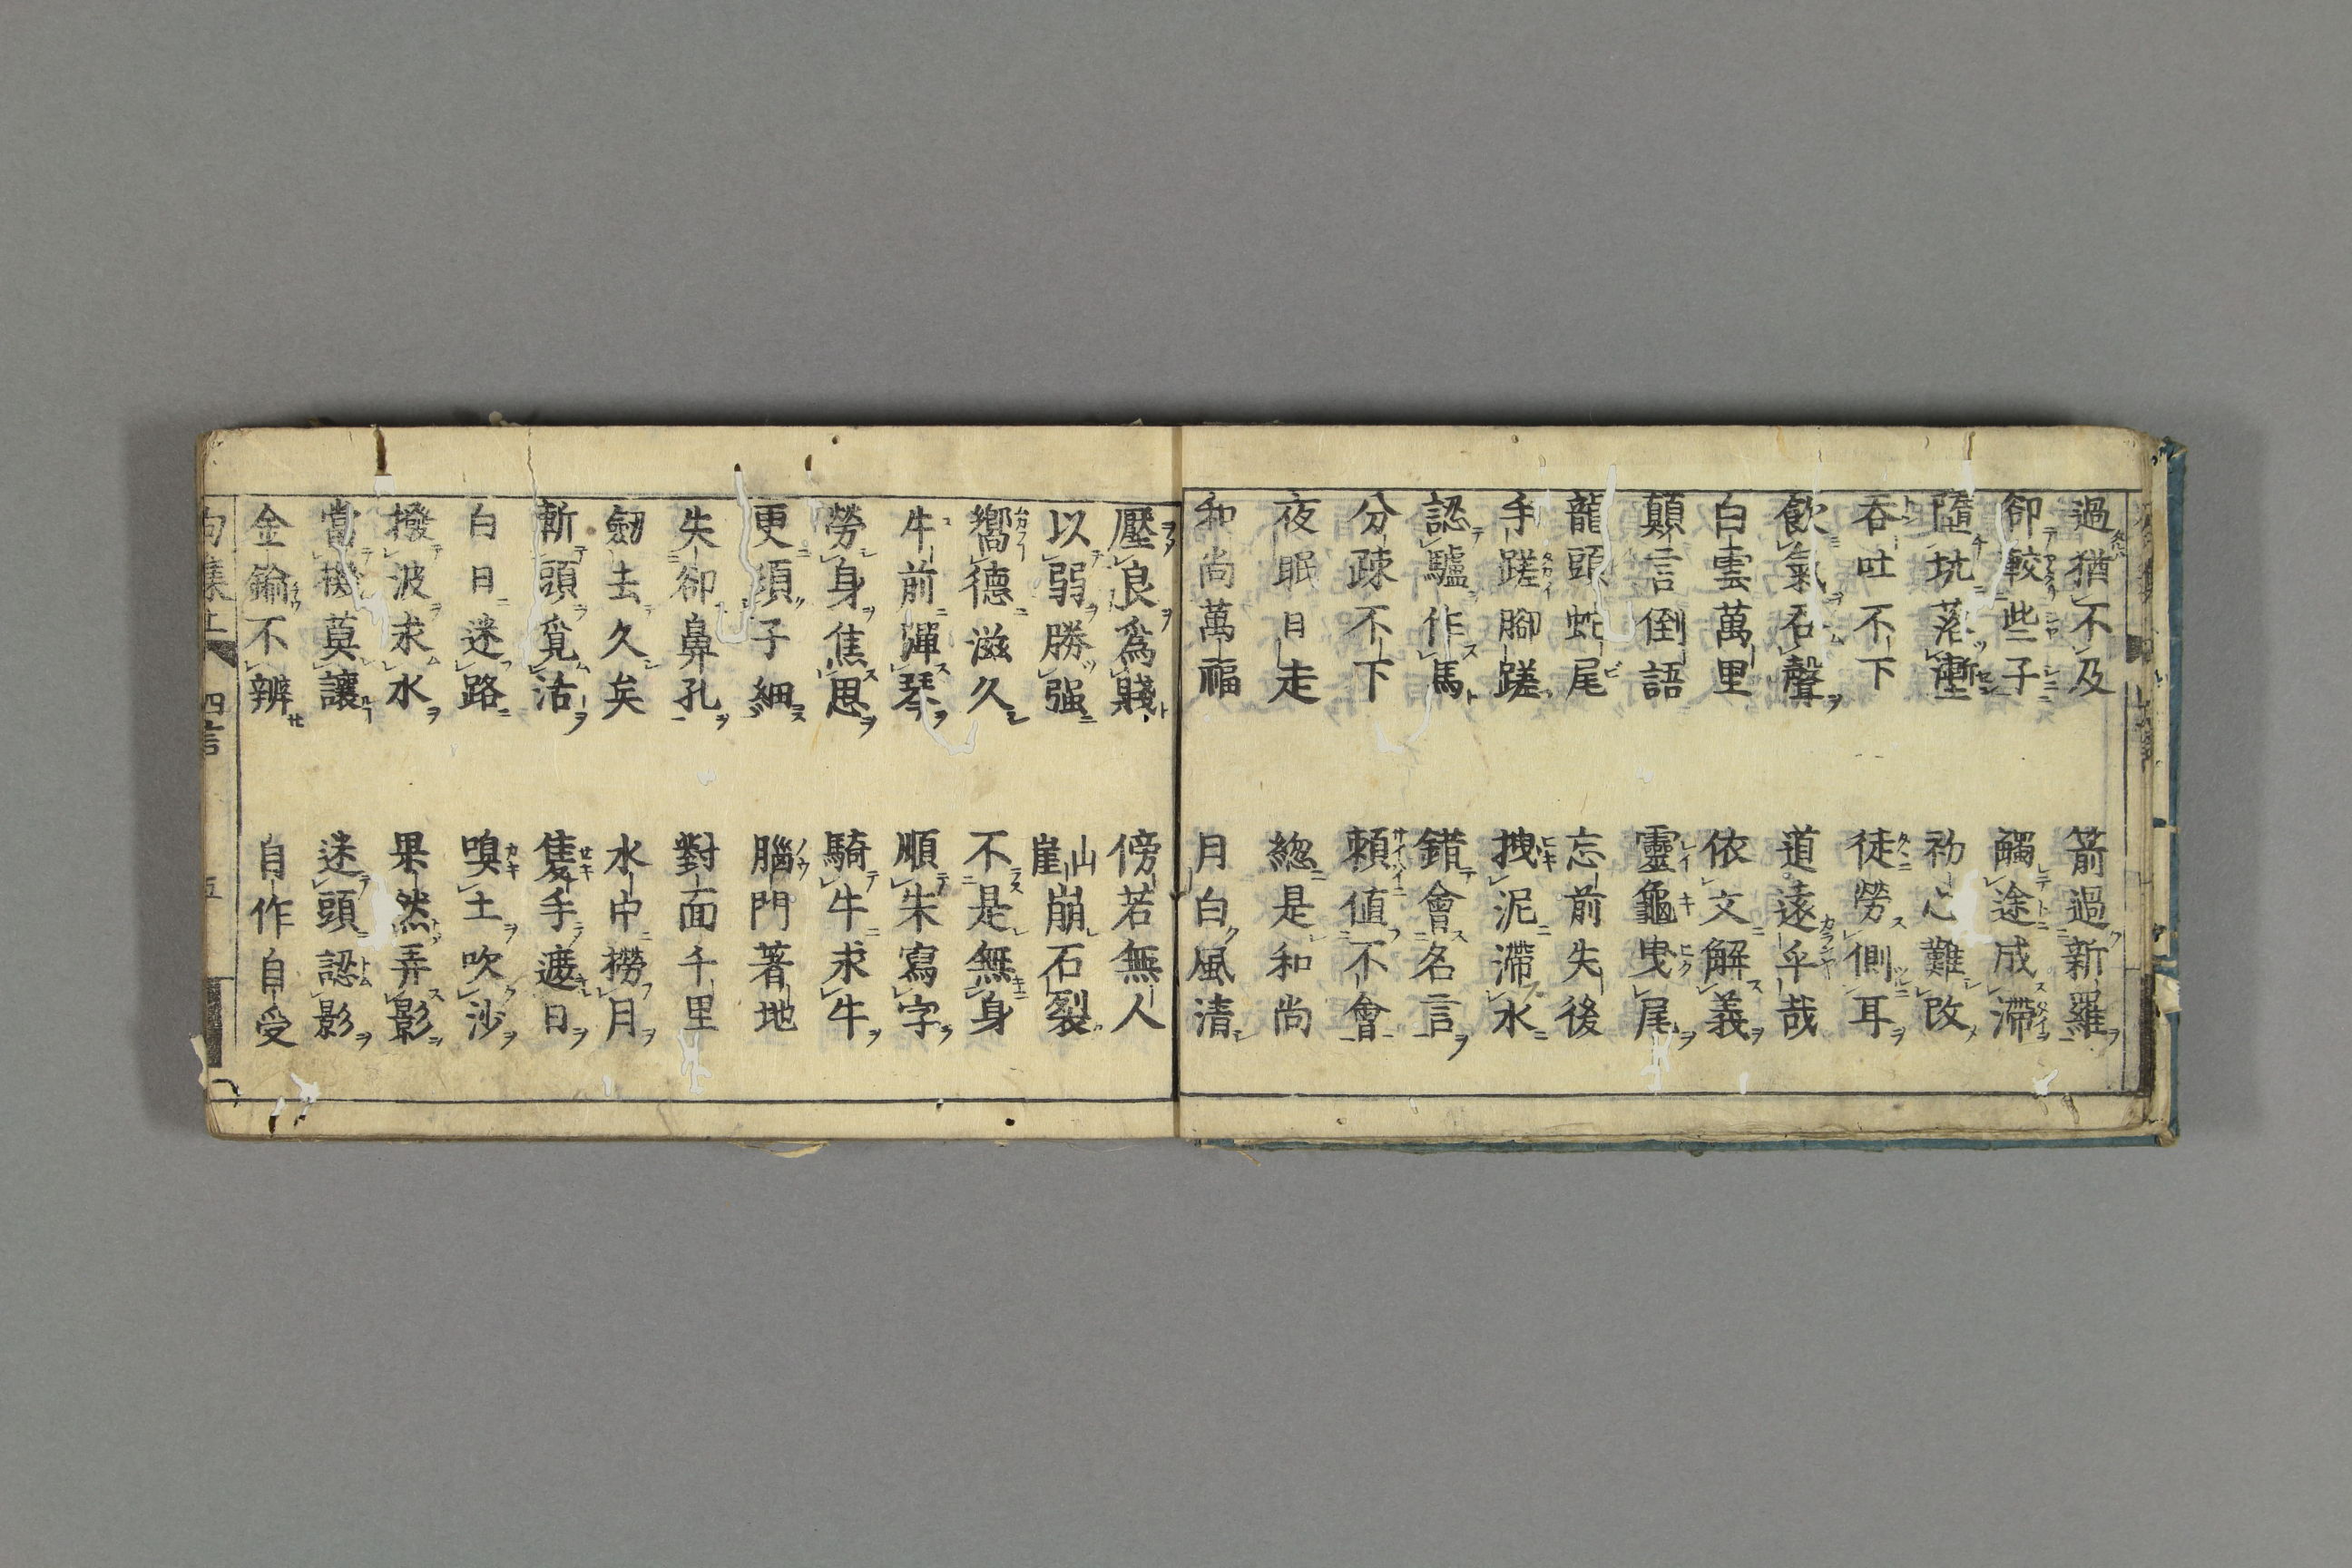 過猶不及 箭過新羅
卻較些子 觸途成滯
隨坑落壍 初心難改
呑吐不下 徒勞側耳
飲氣呑聲 道遠乎哉
白雲萬里 依文解義
顛言倒語 靈龜曳尾
龍頭蛇尾 忘前失後
手蹉腳蹉 拽泥滯水
認驢作馬 錯會名言
分疎不下 頼値不會
夜眠日走 総是和尚
和尚萬福 月白風清
壓良爲賤 傍若無人
以弱勝强 山崖崩石裂
嚮德滋久 不是無身
牛前彈琴 順朱寫字
勞身焦思 騎牛求牛
更須子細 腦門著地
失卻鼻孔 對面千里
劒去久矣 水中撈月
斬頭覓活 隻手遮日
白日迷路 嗅土吹沙
撥波求水 果然弄影
當機莫讓 迷頭認影
金鍮不辨 自作自受
句集上 四言 五